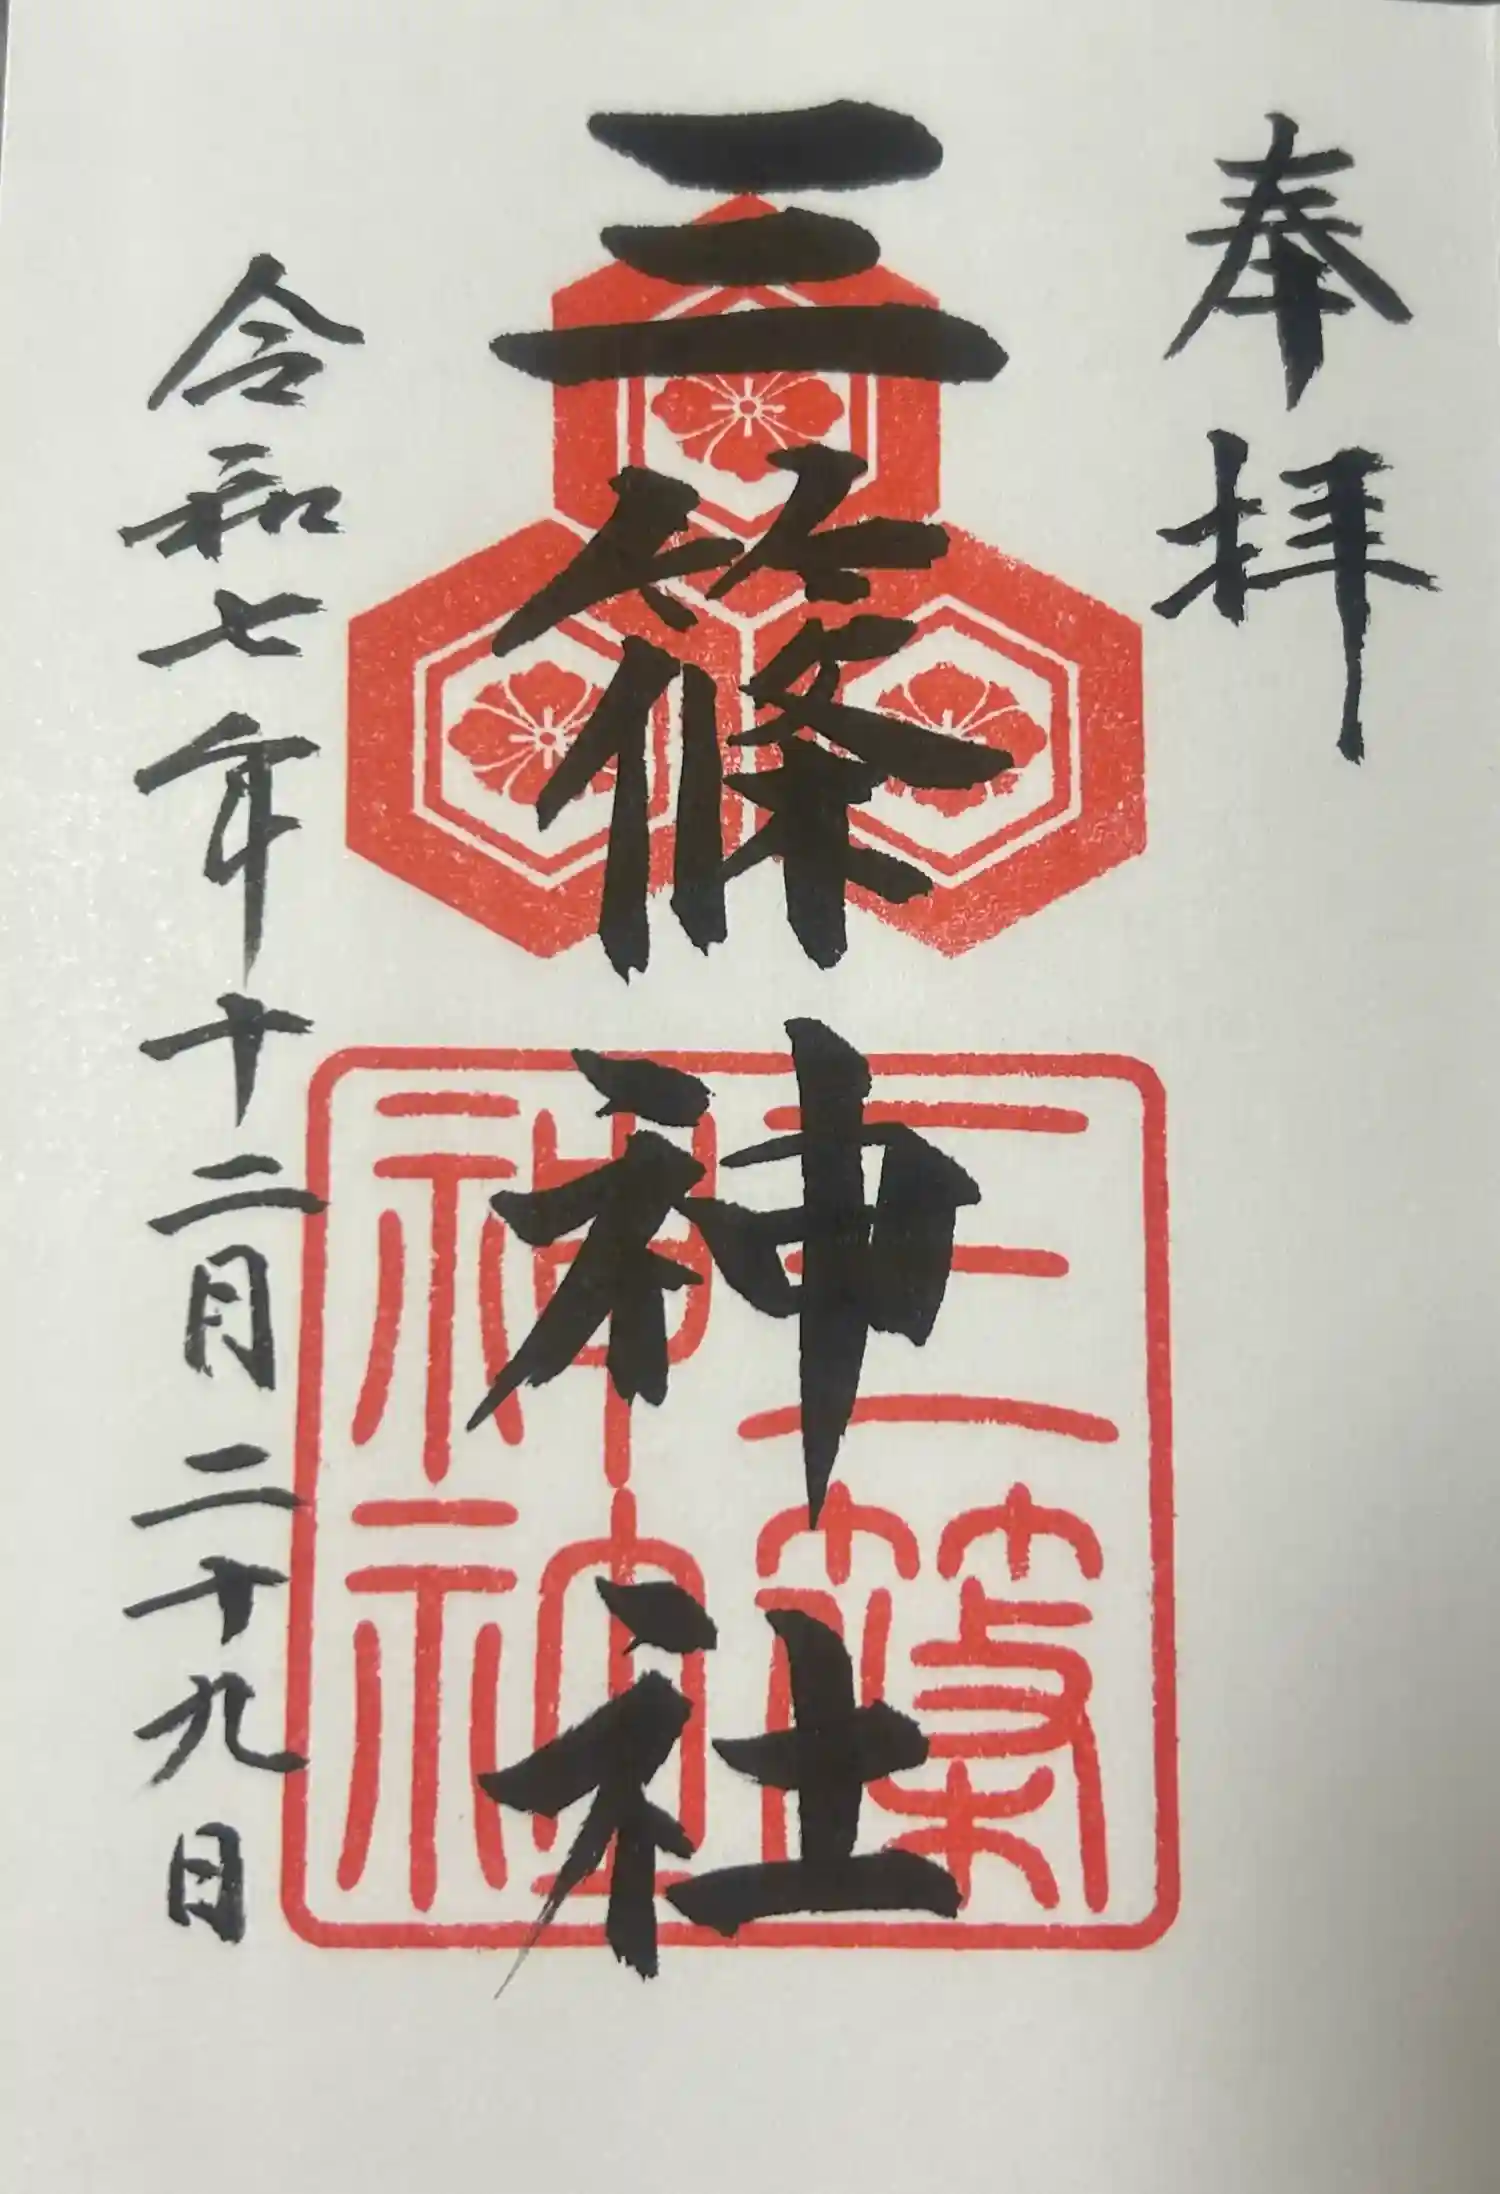 奉拝
三篠神社
三篠
神社
令和七年十二月二十九日